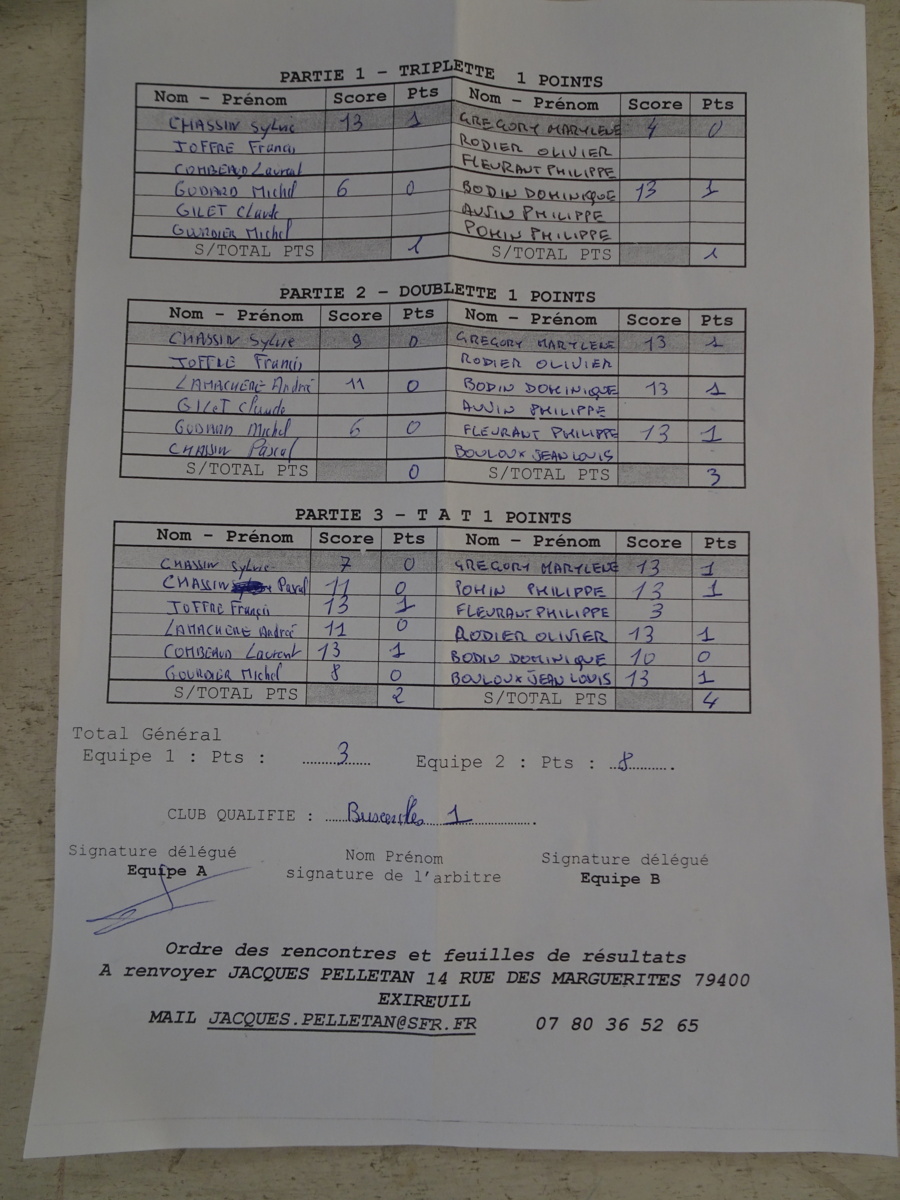 PARTIE 1 - TRIPLETTE 1 POINTS
Nom - Prénom Score Pts Nom - Prénom Score Pts
CHASSIN Sylvie 13 1 GREGORY MARYLENE 4 0
JOFFRE Francis RODIER OLIVIER
COMBEAUD Laurent FLEURANT PHILIPPE
GODARD Michel 6 0 BODIN DOMINIQUE 13 1
GILET Claude AUSIN PHILIPPE
GOURDIER Michel POHIN PHILIPPE
S/TOTAL PTS 1 S/TOTAL PTS 1
PARTIE 2 - DOUBLETTE 1 POINTS
Nom - Prénom Score Pts Nom - Prénom Score Pts
CHASSIN Sylvie 9 0 GREGORY MARYLENE 13 1
JOFFRE Francis RODIER OLIVIER
LAMACHÈRE André 11 0 BODIN DOMINIQUE 13 1
GILET Claude PHILIPPE
GODARD Michel 6 0 FLEURANT PHILIPPE 13 1
CHASSIN Pascal BOULOUX JEAN LOUIS
S/TOTAL PTS 0 S/TOTAL PTS 3
PARTIE 3 - T A T 1 POINTS
Nom - Prénom Score Pts Nom - Prénom Score Pts
CHASSIN Sylvie 7 0 GREGORY MARYLENE 13 1
CHASSIN Pascal 11 0 POHIN PHILIPPE 13 1
JOFFRE Francis 13 1 FLEURANT PHILIPPE 3
LAMACHÈRE André 11 0 RODIER OLIVIER 13 1
COMBEAUD Laurent 13 1 BODIN DOMINIQUE 10 0
GOURDIER Michel 8 0 BOULOUX JEAN LOUIS 13 1
S/TOTAL PTS 2 S/TOTAL PTS 4
Total Général
Equipe 1 : Pts : 3 Equipe 2 : Pts : 8
CLUB QUALIFIE : 1
Signature délégué Nom Prénom Signature délégué
Equipe A signature de l'arbitre Equipe B
Ordre des rencontres et feuilles de résultats
A renvoyer JACQUES PELLETAN 14 RUE DES MARGUERITES 79400
EXIREUIL
MAIL JACQUES.PELLETAN@SFR.FR 07 80 36 52 65